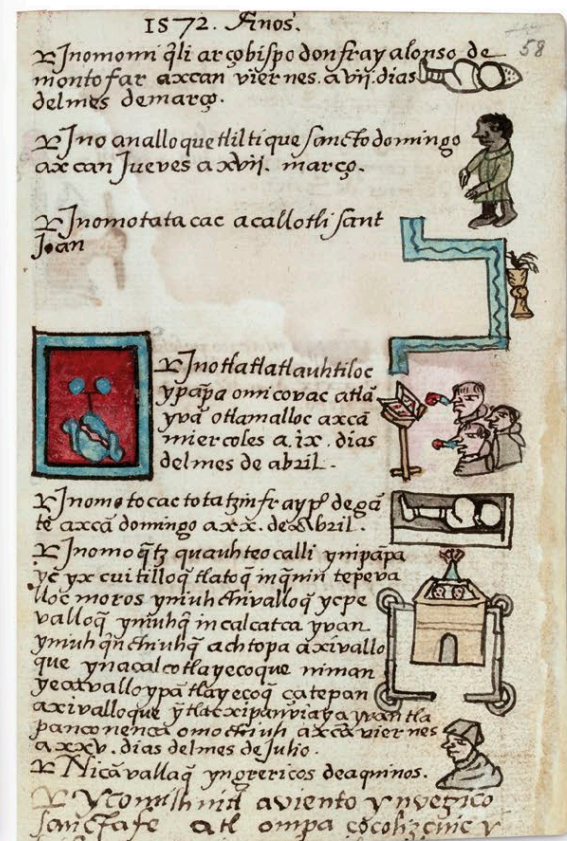 1572. Años.
58
Inomomiq̃li arçobispo don fray alonso de
montofar axcan viernes. a vij. dias
del mes de março.
Ino analloque tliltique sancto domingo
axcan Jueves a xvij. março.
Inomotataca acallotli sant
Joan
Inotlatlatlauhtiloc
ypãpa omicovac atlã
yvã otlamalloc axcã
miercoles a. ix. dias
del mes de abril.
Inomotocac totatzin fray pº de gã
te axcã domingo a xx. de abril.
Inomoq̃tz quauhteocalli ynipãpa
yc yxcuitilloq̃ tlatoq̃
lloc moros yniuh chivalloq̃ ycpe
valloq̃ yniuhq̃ in calcatca yvan
yniuh achtopa axivallo
que ynacalcotlayecoque niman
yeaxvalloypã tlayecoq̃ çatepan
axivalloque yvan tla
panconenca omochiuh axcã viernes
a xxv. dias del mes de Julio.
Nicã vallaq̃ yngrericos de aquinos.
aviento
sanctafe atl ompa